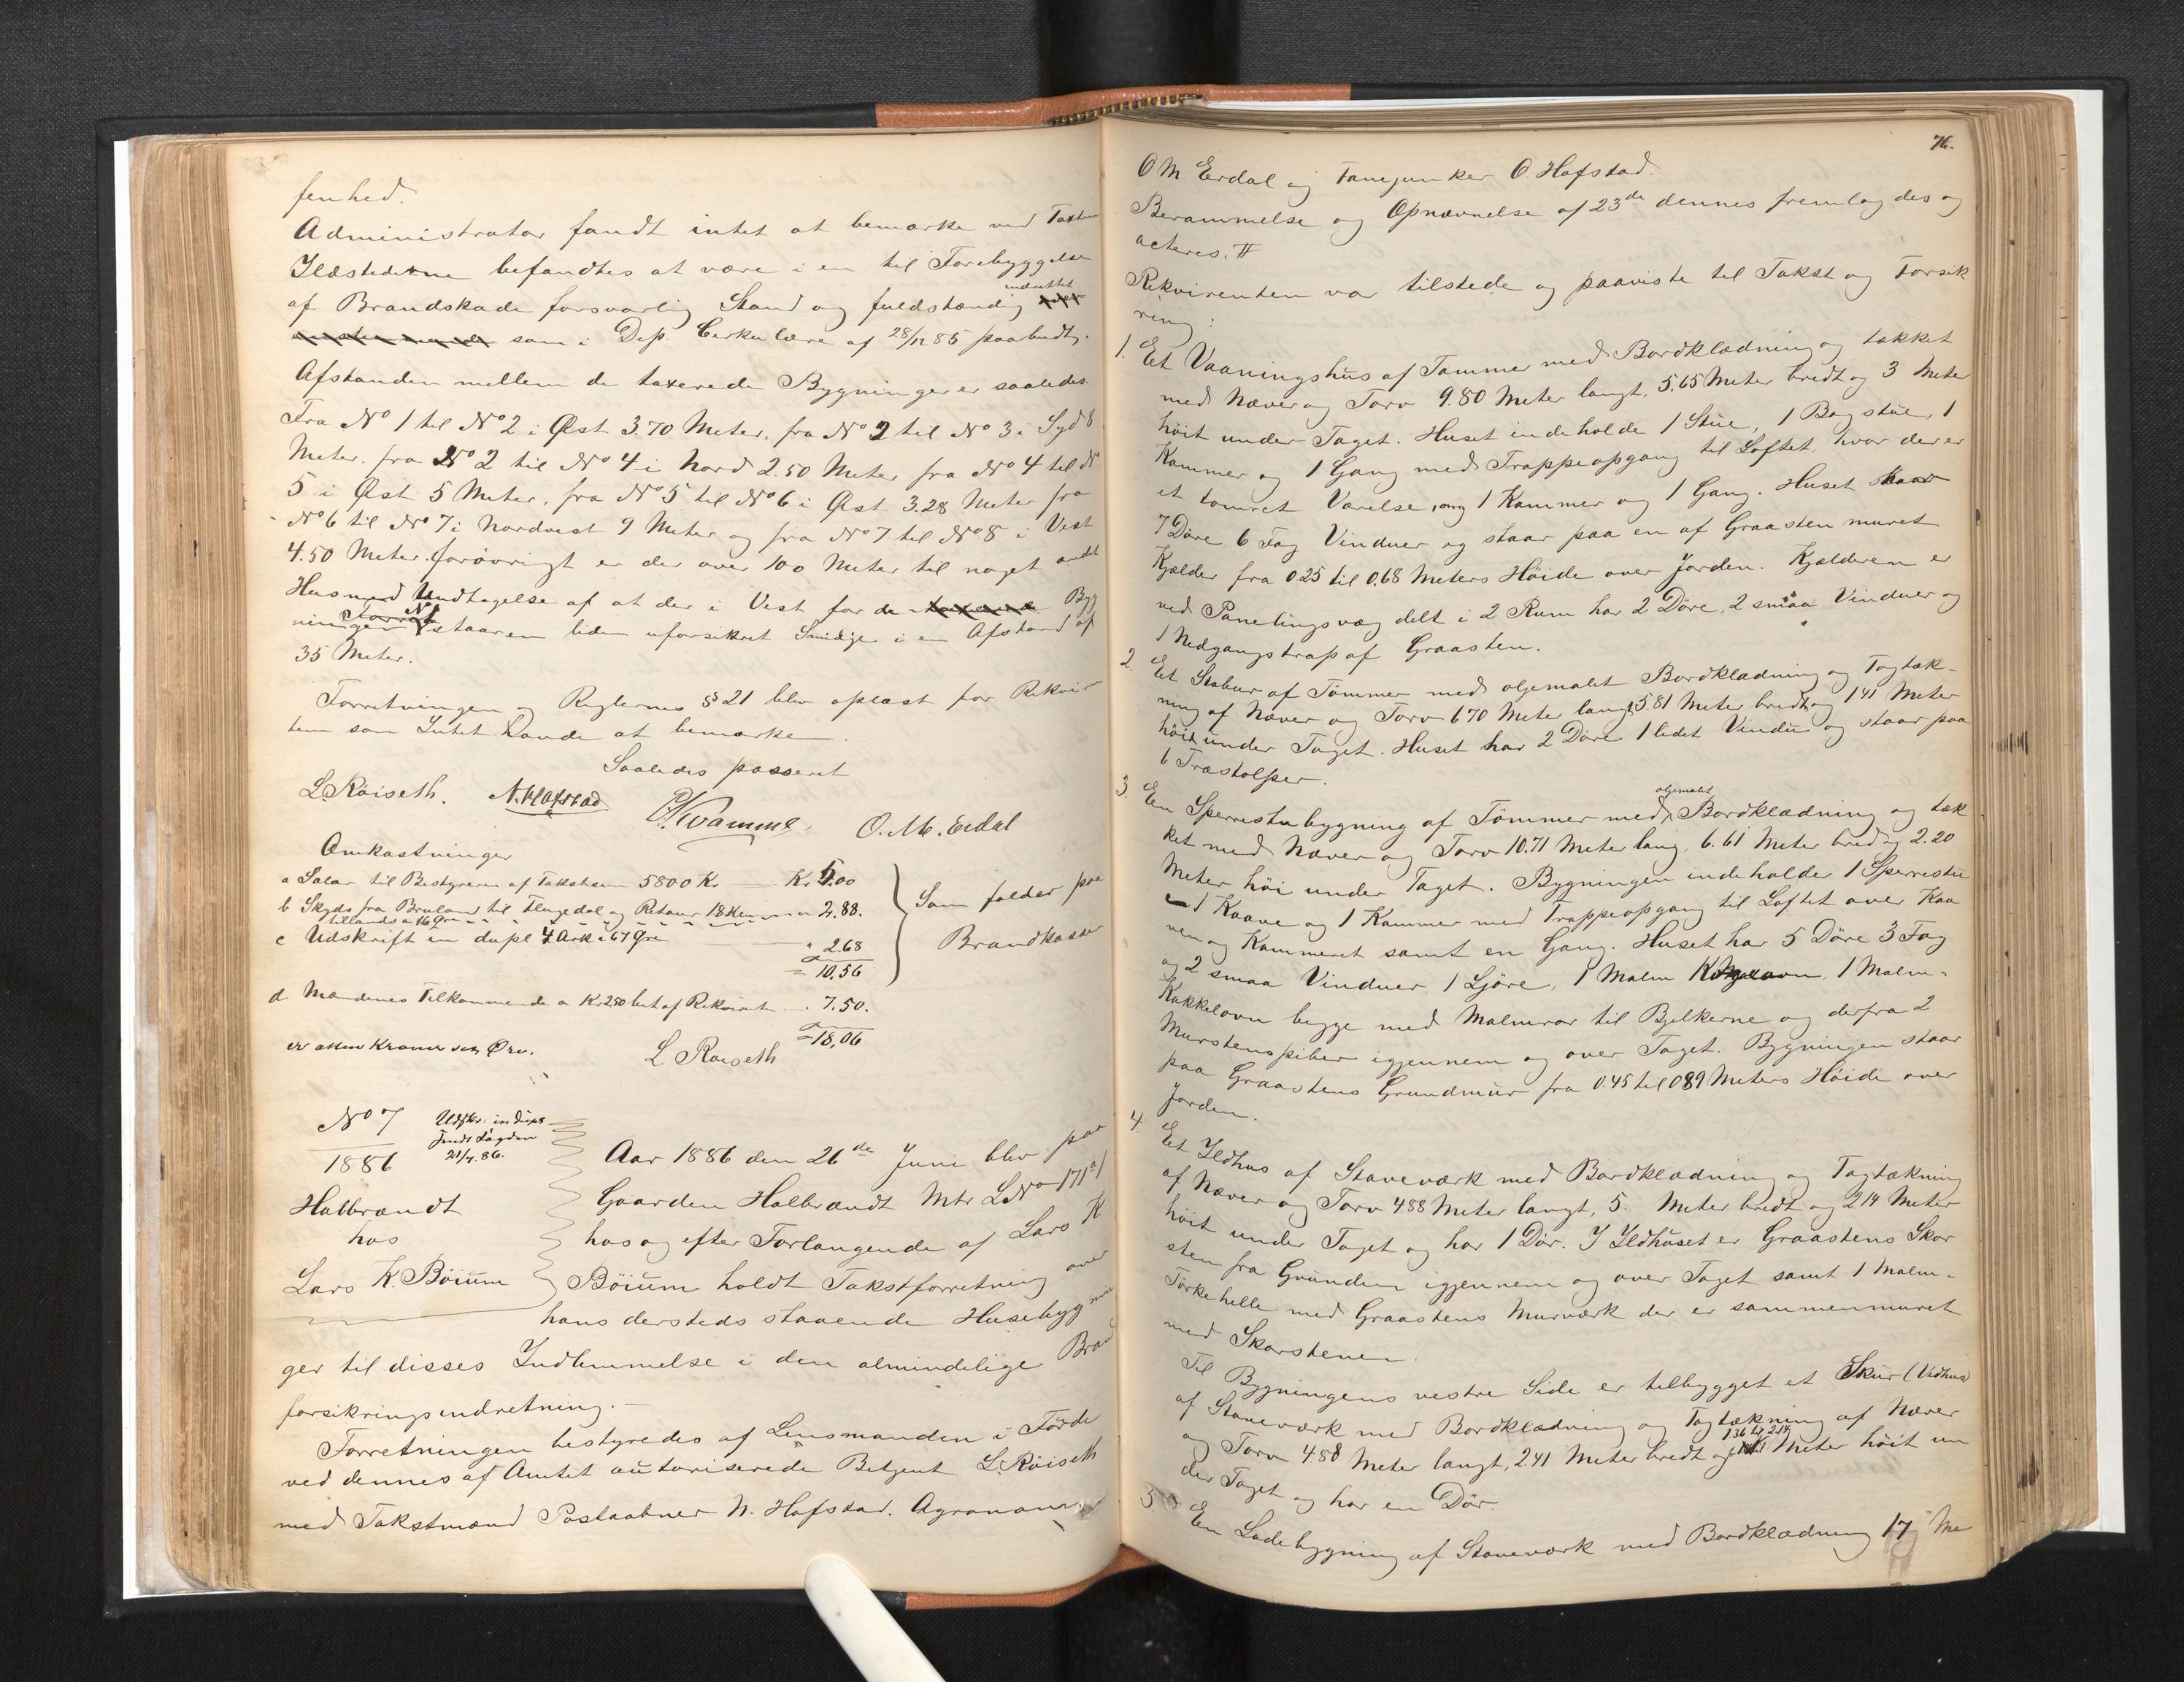 fenhed.
Administrator fandt intet at bemærke ved Taxten
Ildestederne befandtes at være i en til Forebyggelse
af Brandskade forsvarlig Stand og fuldstændig indrettet
som i Dep. Cirkulære af 28/12 85 paabudt.
Afstanden mellem de taxerede Bygninger er saaledes.
Fra No 1 til No 2 i Øst 3.70 Meter, fra No 2 til No 3 i Syd 8
Meter. fra No 2 til No 4 i Nord 2.50 Meter, fra No 4 til No
5 i Øst 5 Meter, fra No 5 til No 6 i Øst 3.28 Meter fra
No 6 til No 7 i Nordvest 9 Meter og fra No 7 til No 8 i Vest
4.50 Meter. forøvrigt er der over 100 Meter til noget andet
Hus med Undtagelse af at der i Vest for de taxerede Byg
ninger Forret N1 staar en liden uforsikret Smidje i en Afstand af
35 Meter.
Forretningen og Reglernes § 21 blev oplæst for Rekviren
ten som Intet havde at bemærke.
Saaledes passeret
L. Røiseth. N. Hafstad P. Kvamme. O. M. Erdal
Omkostninger
a Salær til Bestyreren af Takstsum 5800 Kr — Kr 5.00
b Skyds fra Bruland til Flugedal og Retour 18 Km " 2.88.
tillands a 16 Øre
c Udskrift in dupl 4 Ark a 67 Øre " 2.68
= 10.56
Som falder paa
Brandkassen
d Mændenes Tilkommende a Kr 2.50 bet af Rekvirenten " 7.50.
= 18,06
er atten Kroner sex Øre.
L Røiseth
No 7
1886
Udskr. in dupl
sendt Fogden
21/7. 86.
Halbrændt
hos
Lars K. Bøium
Aar 1886 den 26de Juni blev paa
Gaarden Halbrændt Mtr LNo 171 a
hos og efter Forlangende af Lars K
Bøium holdt Takstforretning over
hans dersteds staaende Husebygnin
ger til disses Indlemmelse i den almindelige Brand
forsikringsindretning.
Forretningen bestyredes af Lensmanden i Førde
ved dennes af Amtet autoriserede Betjent L. Røiseth
med Takstmænd Postaabner N. Hafstad. Agronom
76.
O M Erdal og Fanejunker O. Hafstad.
Berammelse og Opnævnelse af 23de dennes fremlagdes og
acteres. #
Rekvirenten var tilstede og paaviste til Takst og Forsik
ring:
1. Et Vaaningshus af Tømmer med Bordklædning og tækket
med Næver og Torv 9.80 Meter langt, 5.65 Meter bredt og 3 Meter
høit under Taget. Huset indeholder 1 Stue, 1 Bagstue, 1
Kammer og 1 Gang med Trappeopgang til Loftet, hvor der er
et tømret Værelse, og 1 Kammer og 1 Gang. Huset har
7 Døre, 6 Fag Vinduer og staar paa en af Graasten muret
Kjælder fra 0.25 til 0,68 Meters Høide over Jorden. Kjælderen er
ved Panelingsvæg delt i 2 Rum har 2 Døre, 2 smaa Vinduer og
1 Nedgangstrap af Graasten.
2. Et Stabur af Tømmer med oljemalet Bordklædning og Tagtæk-
ning af Næver og Torv 6.70 Meter langt, 5.81 Meter bredt og 1.41 Meter
høit under Taget. Huset har 2 Døre 1 lidet Vindu og staar paa
6 Træstolper.
3. En Sperrestubygning af Tømmer med oljemalet Bordklædning og tæk
ket med Næver og Torv 10.71 Meter lang, 6.61 Meter bred og 2.20
Meter høi under Taget. Bygningen indeholder 1 Sperrestue
1 Kaave og 1 Kammer med Trappeopgang til Loftet over Kaa
ven og Kammeret samt en Gang. Huset har 5 Døre 3 Fag
og 2 smaa Vinduer, 1 Ljøre, 1 Malm Kogeovn, 1 Malm-
Kakkelovn begge med Malmrør til Bjelkerne og derfra 2
Murstenspiber igjennem og over Taget. Bygningen staar
paa Graastens Grundmur fra 0.45 til 0.89 Meters Høide over
Jorden.
4. Et Ildhus af Staveværk med Bordklædning og Tagtækning
af Næver og Torv 4.88 Meter langt, 5. Meter bredt og 2.14 Meter
høit under Taget og har 1 Dør. I Ildhuset er Graastens Skor
sten fra Grunden igjennem og over Taget samt 1 Malm-
Tørkehelle med Graastens Murværk der er sammenmuret
med Skorstenen.
Til Bygningens vestre Side er tilbygget et Skur (Vedhus)
af Staveværk med Bordklædning og Tagtækning af Næver
og Torv 4.88 Meter langt, 2.41 Meter bredt og 1.36 til 2.14 Meter høit un
der Taget og har en Dør.
5 En Ladebygning af Staveværk med Bordklædning 17 Me